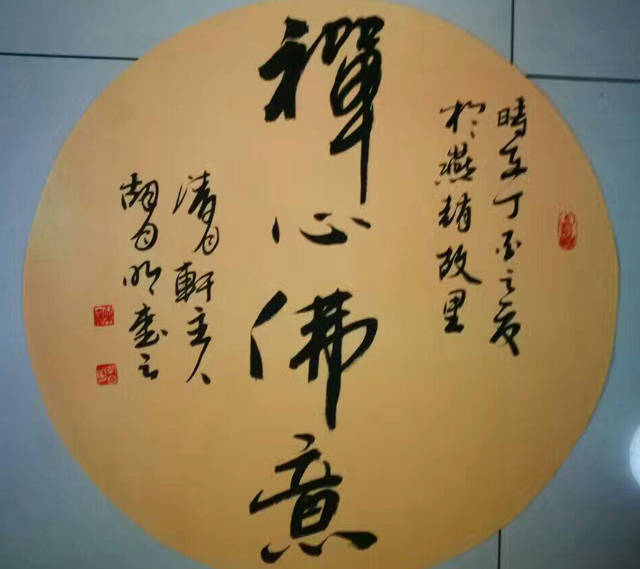 時在丁酉之夏
於燕趙故里
禪心佛意
清月軒主人
胡月明書